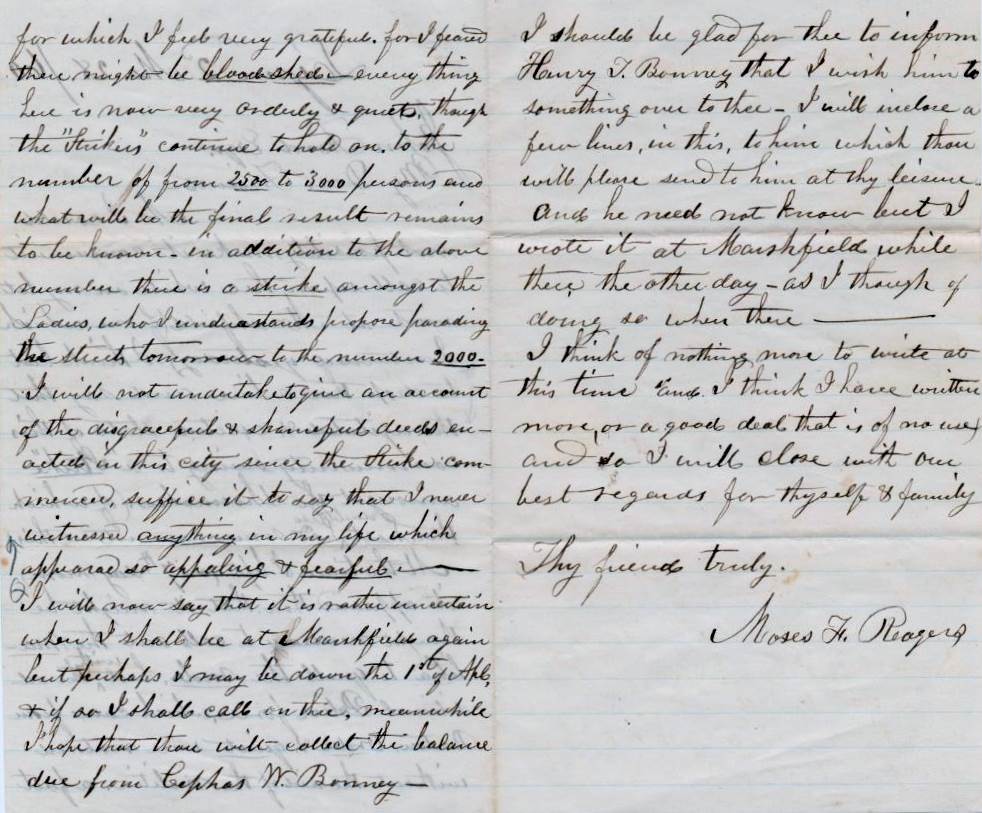 for which I feel very grateful. for I feared
there might be bloodshed - every thing
here is now very orderly & quiet, though
the "Strikers" continue to hold on, to the
number of from 2500 to 3000 persons and
what will be the final result remains
to be known - in addition to the above
number there is a strike amongst the
Ladies, who I understand propose parading
the streets tomorrow to the number 2000 -
I will not undertake to give an account
of the disgraceful & shameful deeds en-
acted in this city since the strike com-
menced, suffice it to say that I never
witnessed anything in my life which
appeared so appaling & fearful. —
I will now say that it is rather uncertain
when I shall be at Marshfield again
but perhaps I may be down the 1st of Apl,
& if so I shall call on thee, meanwhile
I hope that thou will collect the balance
due from Cephas W. Bonney —
I should be glad for thee to inform
Henry T. Bonney that I wish him to
something over to thee - I will inclose a
few lines, in this, to him which thou
will please send to him at thy leisure -
and he need not know but I
wrote it at Marshfield while
there, the other day - as I though of
doing so when there —
I think of nothing more to write at
this time and I think I have written
more, or a good deal that is of no use,
and so I will close with our
best regards for thyself & family
Thy friend truly.
Moses F. Rogers